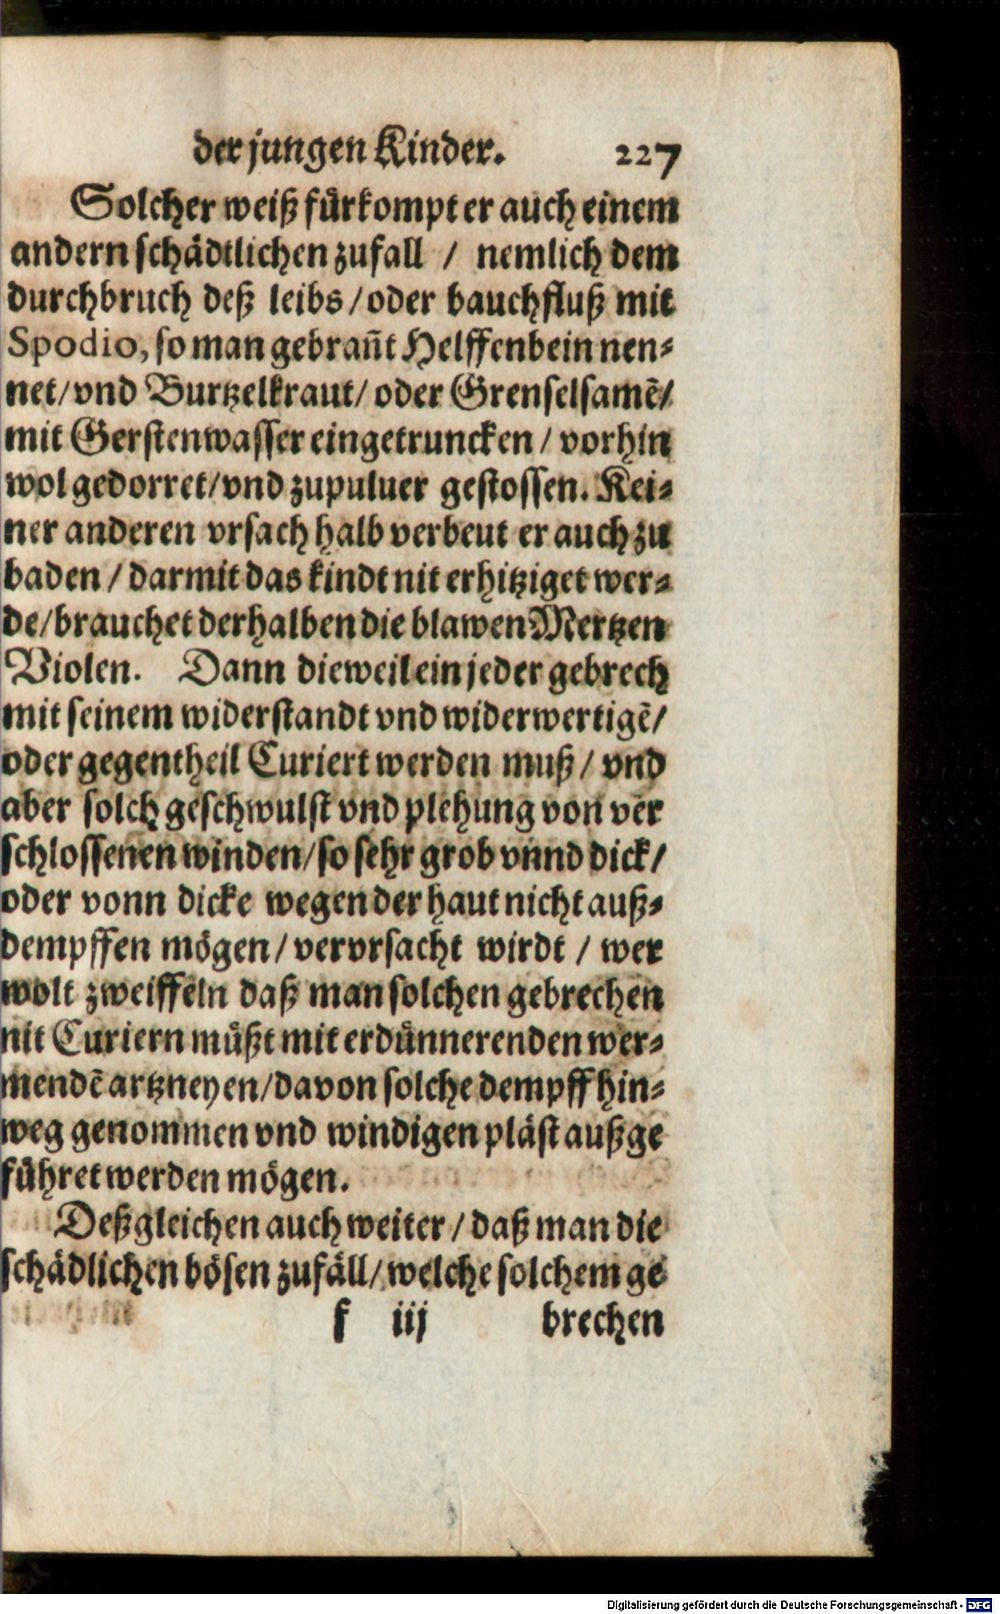 der jungen Kinder. 227
Solcher weiß fürkompt er auch einem
andern schädtlichen zufall / nemlich dem
durchbruch deß leibs / oder bauchfluß mit
Spodio, so man gebrañt Helffenbein nen⸗
net / vnd Burtzelkraut / oder Grenselsamē /
mit Gerstenwasser eingetruncken / vorhin
wol gedorret / vnd zu puluer gestossen. Kei⸗
ner anderen vrsach halb verbeut er auch zu
baden / darmit das kindt nit erhitziget wer⸗
de / brauchet derhalben die blawen Mertzen
Violen. Dann dieweil ein jeder gebrech
mit seinem widerstandt vnd widerwertigē /
oder gegentheil Curiert werden muß / vnd
aber solch geschwulst vnd plehung von ver
schlossenen winden / so sehr grob vnnd dick /
oder vonn dicke wegen der haut nicht auß⸗
dempffen mögen / vervrsacht wirdt / wer
wolt zweiffeln daß man solchen gebrechen
nit Curiern müßt mit erdünnerenden wer⸗
mendē artzneyen / davon solche dempff hin⸗
weg genommen vnd windigen pläst außge
führet werden mögen.
Deßgleichen auch weiter / daß man die
schädlichen bösen zufäll / welche solchem ge
f iij brechen
Digitalisierung gefördert durch die Deutsche Forschungsgemeinschaft - DFG